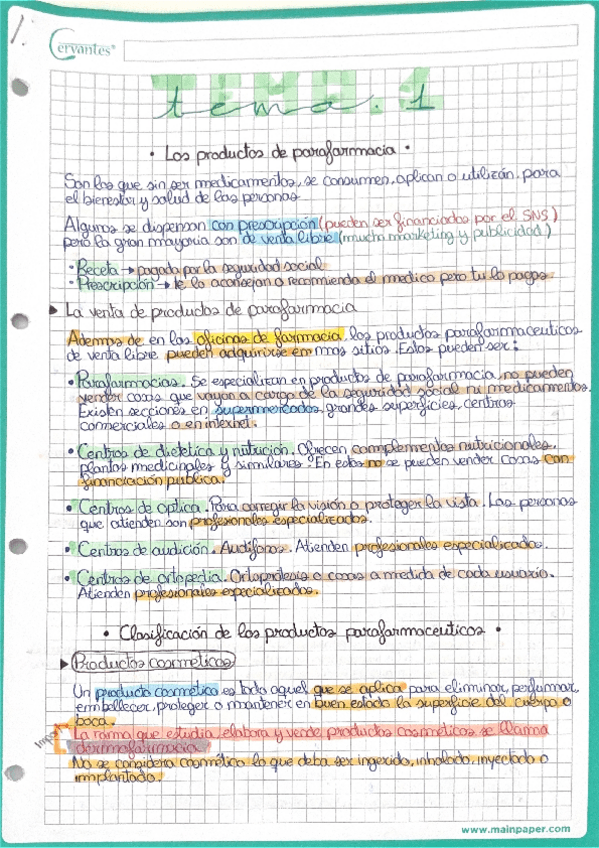 1.
Cervantes®
TEMA.1
tema.1
• Los productos de parafarmacia •
Son los que sin ser medicamentos, se consumen, aplican o utilizan para
el bienestar y salud de las personas.
Algunos se dispensan con prescripción (pueden ser financiados por el SNS)
pero la gran mayoría son de venta libre (mucho marketing y publicidad)
• Receta → pagada por la seguridad social
• Prescripción → te la aconsejan o recomienda el medico pero tu lo pagas.
▸ La venta de productos de parafarmacia
Ademas de en las oficinas de farmacia, los productos parafarmaceuticos
de venta libre pueden adquirirse en mas sitios. Estos pueden ser:
• Parafarmacias. Se especializan en productos de parafarmacia, no pueden
vender cosas que vayan a cargo de la seguridad social ni medicamentos.
Existen secciones en supermercados, grandes superficies, centros
comerciales o en internet.
• Centros de dietetica y nutrición. Ofrecen complementos nutricionales,
plantas medicinales y similares. En estos no se pueden vender cosas con
financiación publica.
• Centros de optica. Para corregir la visión o proteger la vista. Las personas
que atienden son profesionales especializados.
• Centros de audición. Audífonos. Atienden profesionales especializados.
• Centros de ortopedia. Ortoprotesis o cosas a medida de cada usuario.
Atienden profesionales especializados.
• Clasificación de los productos parafarmaceuticos •
▸ Productos cosmeticos
Un producto cosmetico es todo aquel que se aplica para eliminar, perfumar,
embellecer, proteger o mantener en buen estado la superficie del cuerpo o
boca.
Import
La rama que estudia, elabora y vende productos cosmeticos se llama
dermofarmacia
No se considera cosmético lo que deba ser ingerido, inhalado, inyectado o
implantado.
www.mainpaper.com